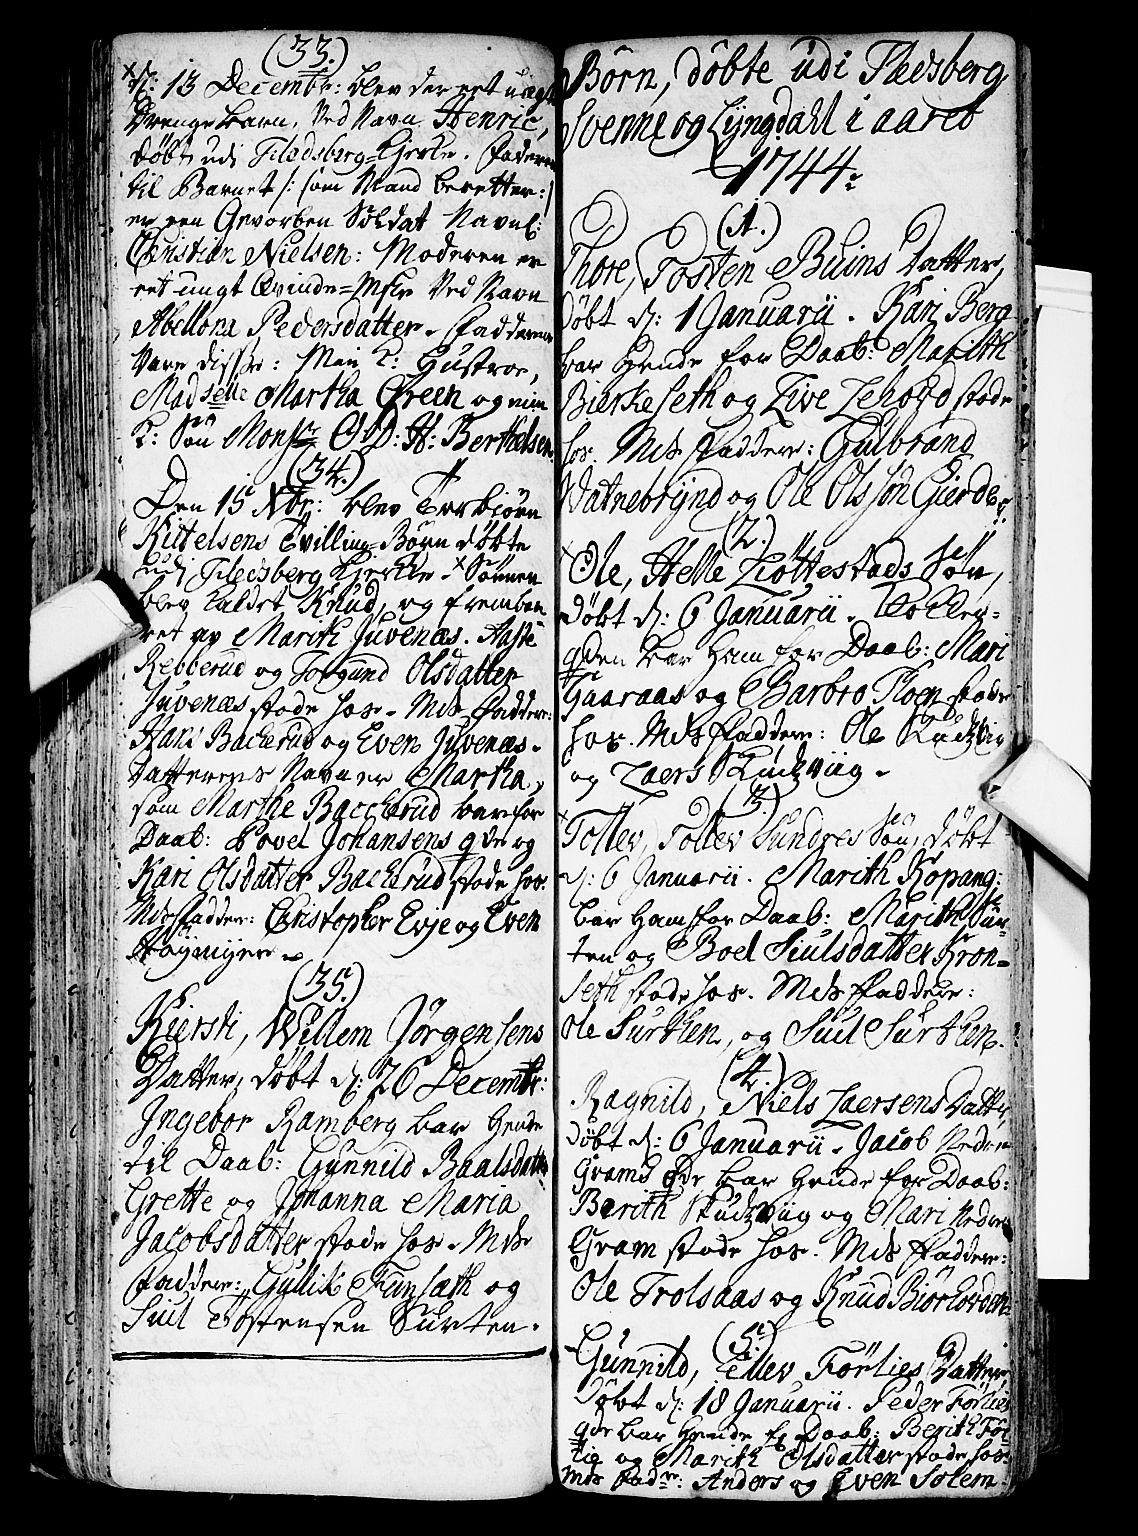 (33.)
d: 13 Decembr: blev der eet uægte
Drengebarn, ved Navn Henric,
døbt udi Flædsberg-Kierke. Faderen
til Barnet /: som Mand beretter :/
er een Gevorben Soldat Navnl:
Christian Nielsen: Moderen er
eet ungt Qvinde-Mskr ved Navn
Abellona Pedersdatter. Fadderne
vare disse: Min K: Hustroe,
Madselle Martha Green og min
K: Søn Monsr
(34.)
Den 15 Xbr: blev Torbiørn
Kittelsens Tvilling-Børn døbte
udi Fledsberg Kierke. Sønnen
blev kaldet Knud, og frembaa
ret av Marith Juvenæs. Aaste
Rebberud og Torgund Olsdatter
Juvenæs stode hos. Mds Faddere:
Hans Backerud og Even Juvenæs.
Datterens Navn er Martha,
som Marthe Backerud bar for
Daab: Povel Johansens qde og
Kari Olsdatter Backerud stode hos.
Mds Faddere: Christopher Evje og Even
Haymyer
(35.)
Kiersti, Willem Jørgensens
Datter, døbt d: 26 Decembr:
Ingebor Ramberg bar hende
til Daab: Gunnild Baalsdatter
Grette og Johanna Maria
Jacobsdatter stode hos. Mds
Faddere: Gullik Funsæth og
Siul Tostensen Surten.
Børn, døbte udi Flædsberg
Svenne og Lyngdahl i aaret
1744:
(1.)
Thore, Tosten Buins Datter,
døbt d: 1 Januarii. Kari Berg
bar hende for Daab: Marith
Bierkeseth og Live Lehovd stode
hos. Mds Faddere: Gulbrand
Watnebrynd og Ole Olsøn Gierde
(2.)
Ole, Helle Liøttestads Søn,
døbt d: 6 Januarii. Kolles-
qden bar ham for Daab: Mari
Gaaraas og Barbro Floen stode
hos. Mds Faddere: Ole Skudzvig
og Laers Skudzviig.
(3.)
Tollev, Tollev Sundres Søn, døbt
d: 6 Januarii. Marith Kopang:
bar ham for Daab: Marith Sur-
ten og Boel Siulsdatter Kron-
seth stode hos. Mds Faddere:
Ole Surthen, og Siul Surthen.
(4.)
Ragnild, Niels Laersens Datter,
døbt d: 6 Januarii. Jacob Nedre
Grams qde bar hende for Daab:
Berith Skudzviig og Mari Nedre
Gram stode hos. Mds Faddere:
Ole Trolsaas og Knud Biørhovden.
(5.)
Gunnild, Ellev Førlies Datter,
døbt d: 18 Januarii. Peder Førlies
qde bar hende for Daab: Berith Før
lie og Marith Olsdatter stode hos.
Mds Faddre: Anders og Even Solem.